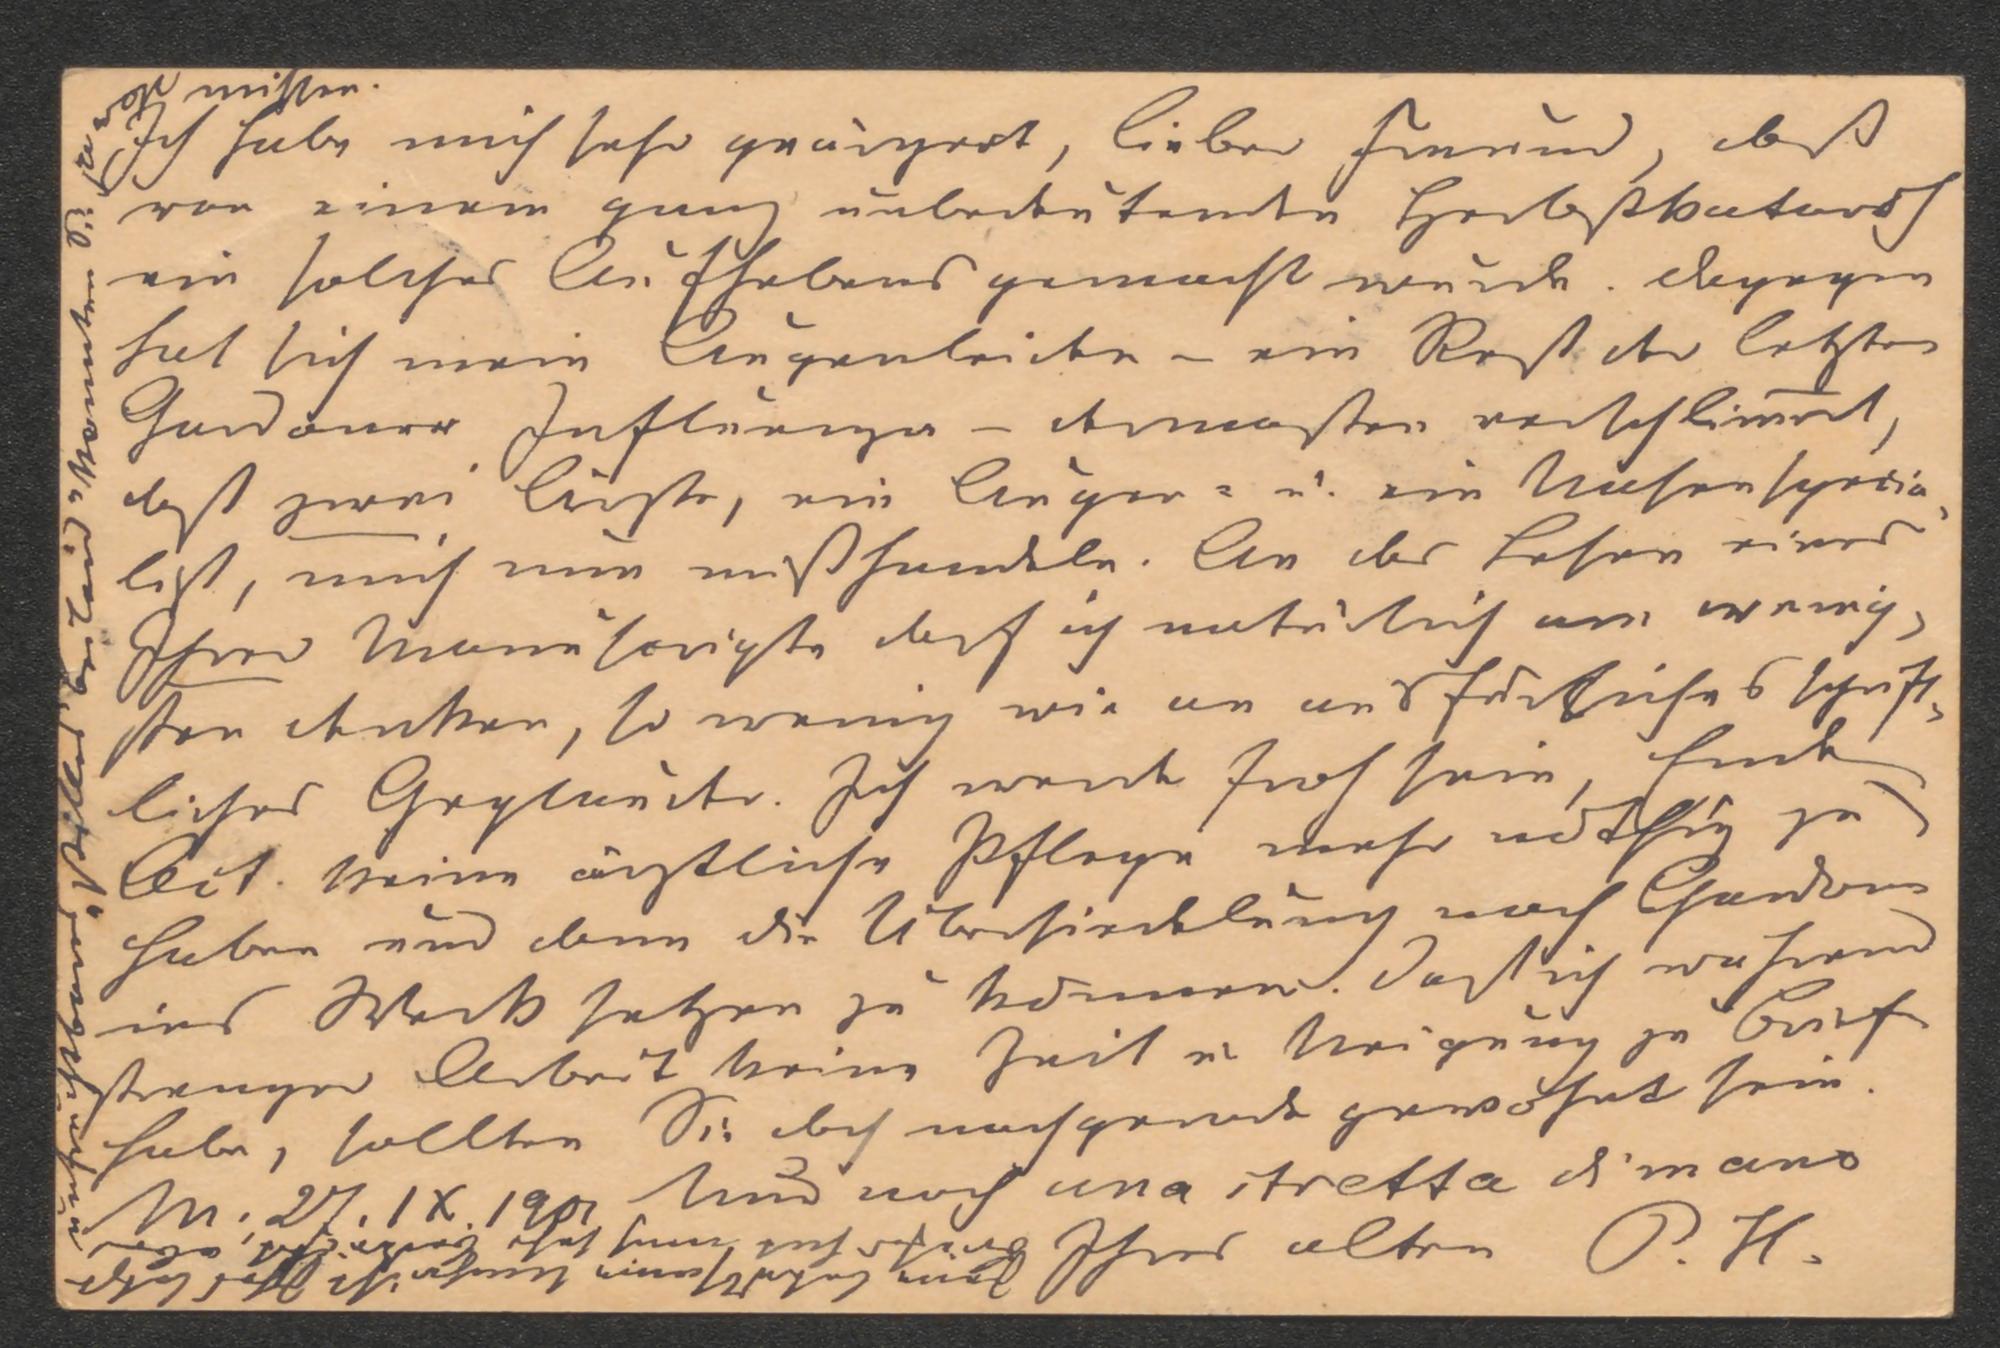 Ich habe mich sehr geärgert, lieber Freund, daß
von einem ganz unbedeutenden Herbstkatarrh
ein solches Aufhebens gemacht wurde. dagegen
hat sich mein Augenleiden – ein Rest der letzten
Gardoner Influenza – dermaßen verschlimert,
daß zwei Ärzte, ein Augen- u. ein Nasenspecia-
list, mich nun mißhandeln. An das Lesen eines
Ihrer Manuscripte darf ich natürlich am wenig-
sten denken, so wenig wie an ausführliches schrift-
liches Geplauder. Ich werde froh sein, Ende
Oct. keine ärztliche Pflege mehr nöthig zu
haben und dann die Übersiedelung nach Gardone
ins Werk setzen zu können. Daß ich während
strenger Arbeit keine Zeit u Neigung zu Brief
habe, sollten Sie doch nachgerade gewöhnt sein.
M. 27. IX. 1901 Und noch una stretta di mano
Ihres alten P. H.
missen.